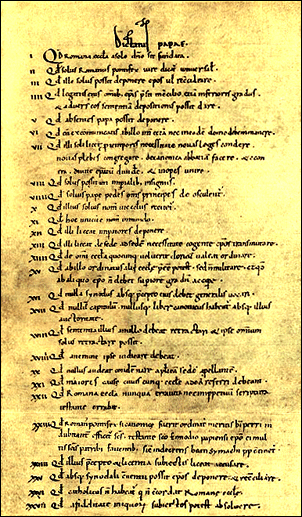 Dictatus papae.
I Qd Romana eccla a solo dno sit fundata.
II Qd solus Romanus pontifex iure dicat universal.
III Qd ille solus possit deponere epos ul reconciliare.
IIII Qd legatus eius omib. epis presit in concilio etia inferioris gradus
& adversus eos sententia depositionis possit dare.
V Qd absentes papa possit deponere.
VI Qd cu excommunicatis ab illo int cetera nec in eade domo debem manere.
VII Qd illi soli licet p temporis necessitate novas leges condere
novas plebes congregare. de canonica abbatia facere. & econtra
divite epatu dividere. & inopes unire.
VIII Qd solus possit uti imperialib. insigniis.
VIIII Qd solius pape pedes oms principes deosculent.
X Qd illius solius nom in eccliis recitet.
XI Qd hoc unicu e nom in mundo.
XII Qd illi liceat imperatores deponere.
XIII Qd illi liceat de sede ad sede necessitate cogente epos transmutare.
XIIII Qd de omi eccla quocunq voluerit clericu valeat ordinare.
XV Qd ab illo ordinatus alii eccle pee potest. sed n militare. et qd
ab aliquo epo n debet superiore gradu accipe.
XVI Qd nulla synodus absq pcepto eius debet generalis vocari.
XVII Qd nullu capitulu nullusq liber canonicus habeat absq illius
auctoritate.
XVIII Qd sententia illius a nullo debeat retractari et ipse omium
solus retractare possit.
XVIIII Qd a nemine ipse iudicari debeat.
XX Qd nullus audeat condenare aplica sede apellante.
XXI Qd maiores cause cuiuscunq eccle ad ea referri debeant.
XXII Qd Romana eccla nunqua erravit nec imppetuu scriptura
testante errabit.
XXIII Qd Romanus pontifex si canonice fuerit ordinatus meritis b petri in
dubitanter efficit scs. testante sco Ennodio papiensi epo ei multis
scis patrib. faventib. sic in decretis beati Symachi pp continet.
XXIIII Qd illius pcepto & licentia subiectis liceat accusare.
XXV Qd absq synodali conventu possit epos deponere & reconciliare.
XXVI Qd catholicus n habeat q n concordat Romane eccle.
XXVII Qd a fidelitate iniquoru subiectos potest absolvere.